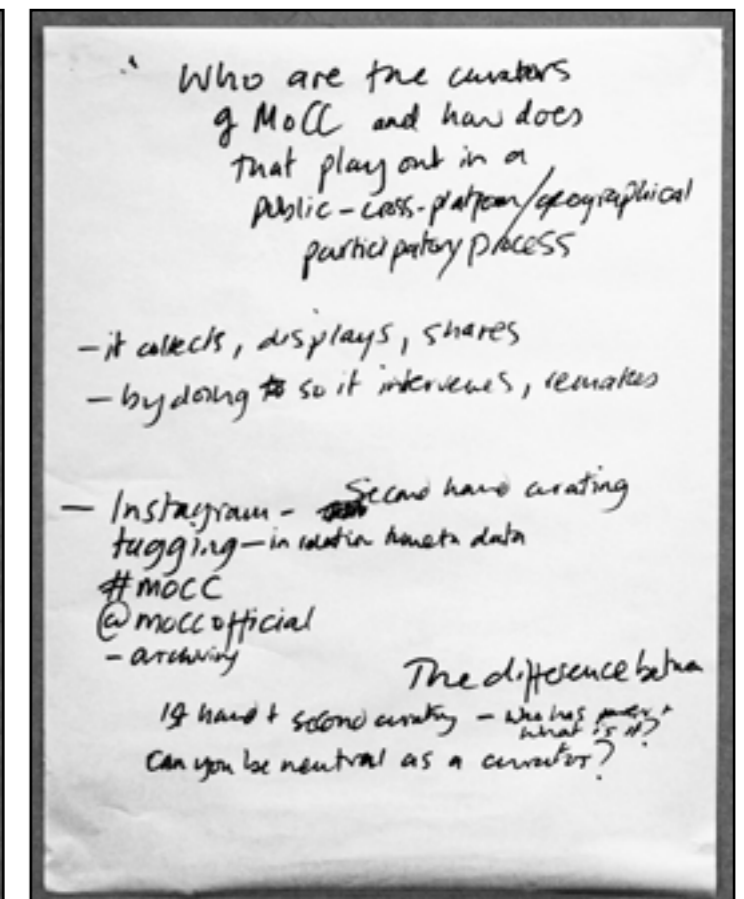 Who are the curators
of MoCC and how does
that play out in a
public-cross-platform/geographical
participatory process
- it collects, displays, shares
- by doing so it intervenes, remakes
- Instagram - Second hand curating
tagging - in relation to meta data
#mocc
@moccofficial
- archiving
The difference between
1st hand + second curating - who has power + what is it?
Can you be neutral as a curator?